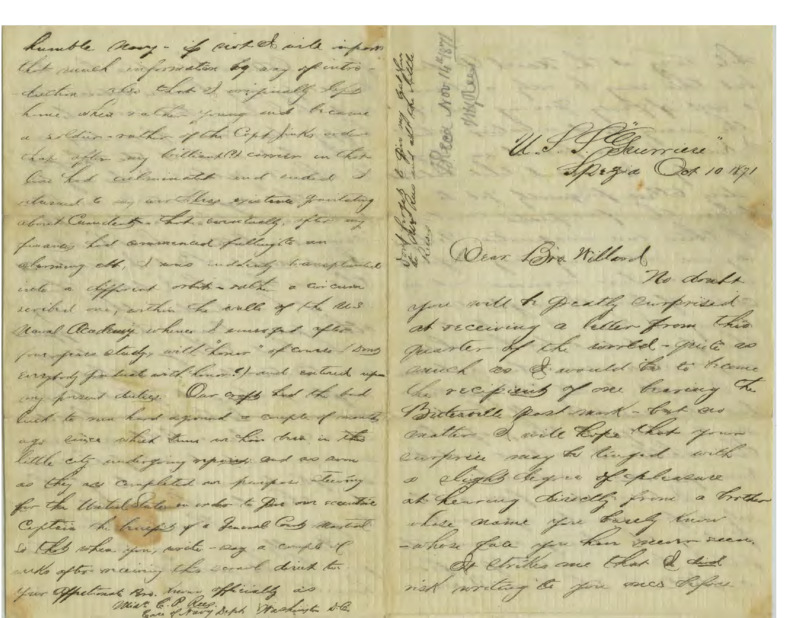 U.S.S. "Guerriere"
Spezia Oct 10 1871
Dear Bro Willard
No doubt
you will be greatly surprised
at receiving a letter from this
quarter of the world - quite as
much as I would be to become
the recipient of one bearing the
post mark - but no
matter I will hope that your
surprise may be tinged with
a slight degree of pleasure
at hearing directly from a brother
whose name you barely know
- whose face you have never seen.
It strikes me that I did
risk writing to you once before
Rec'd Nov 14th 1871
Don't forget to give my
to and all the little
humble Navy - if not I will impart
that much information by way of intro-
duction - also that I originally left
home when rather young and became
a soldier - rather of the Capt Jinks order
that after my brilliant career in that
line had culminated and ended I
returned to my
about - that eventually, after my
finances had commenced falling to an
alarming ebb, I was suddenly transplanted
into a different orbit - rather a circum
scribed one, within the walls of the U.S
Naval Academy whence I emerged after
four years study, with "honor" of course (does
everybody graduate with honor?) and entered upon
my present duties. Our craft had the bad
luck to run hard aground a couple of months
ago since which time we have been in this
little city undergoing repairs and as soon
as they are completed we propose
for the United States in order to give our
Captain the benefit of a General Court Martial
so that when you write - say a couple of
weeks after receiving this scrawl direct to
your affectionate Bro. known officially as
Mid'n C. P. Rees
Care of Navy Dep't Washington D.C.